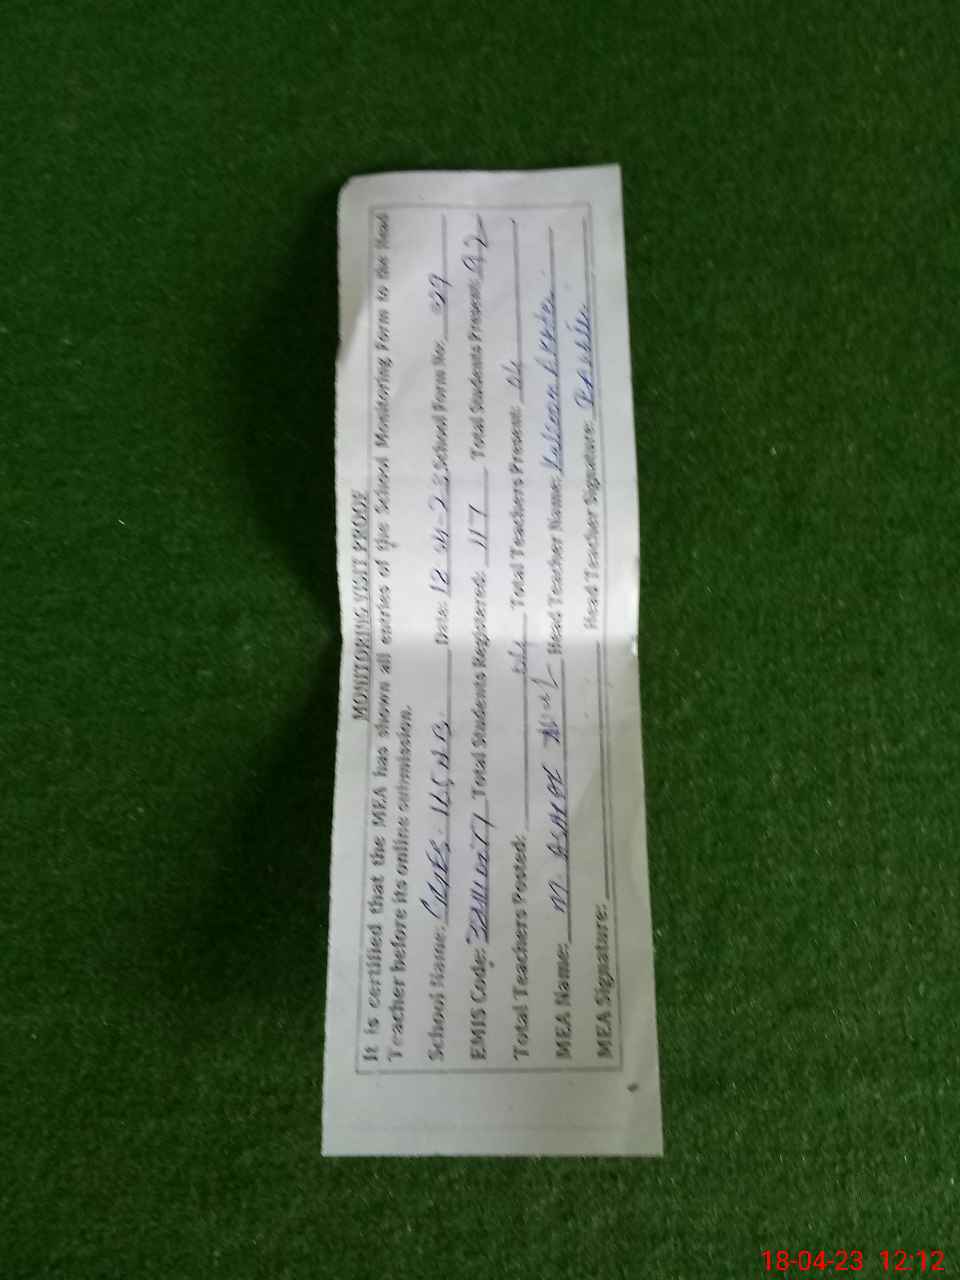 MONITORING VISIT PROOF
It is certified that the MEA has shown all entries of the School Monitoring Form to the Head
Teacher before its online submission.
School Name: Date: 18-04-23 School Form No: 029
EMIS Code: Total Students Registered: 117 Total Students Present: 92
Total Teachers Posted: 04 Total Teachers Present: 04
MEA Name: M. Head Teacher Name:
MEA Signature: Head Teacher Signature:
18-04-23 12:12